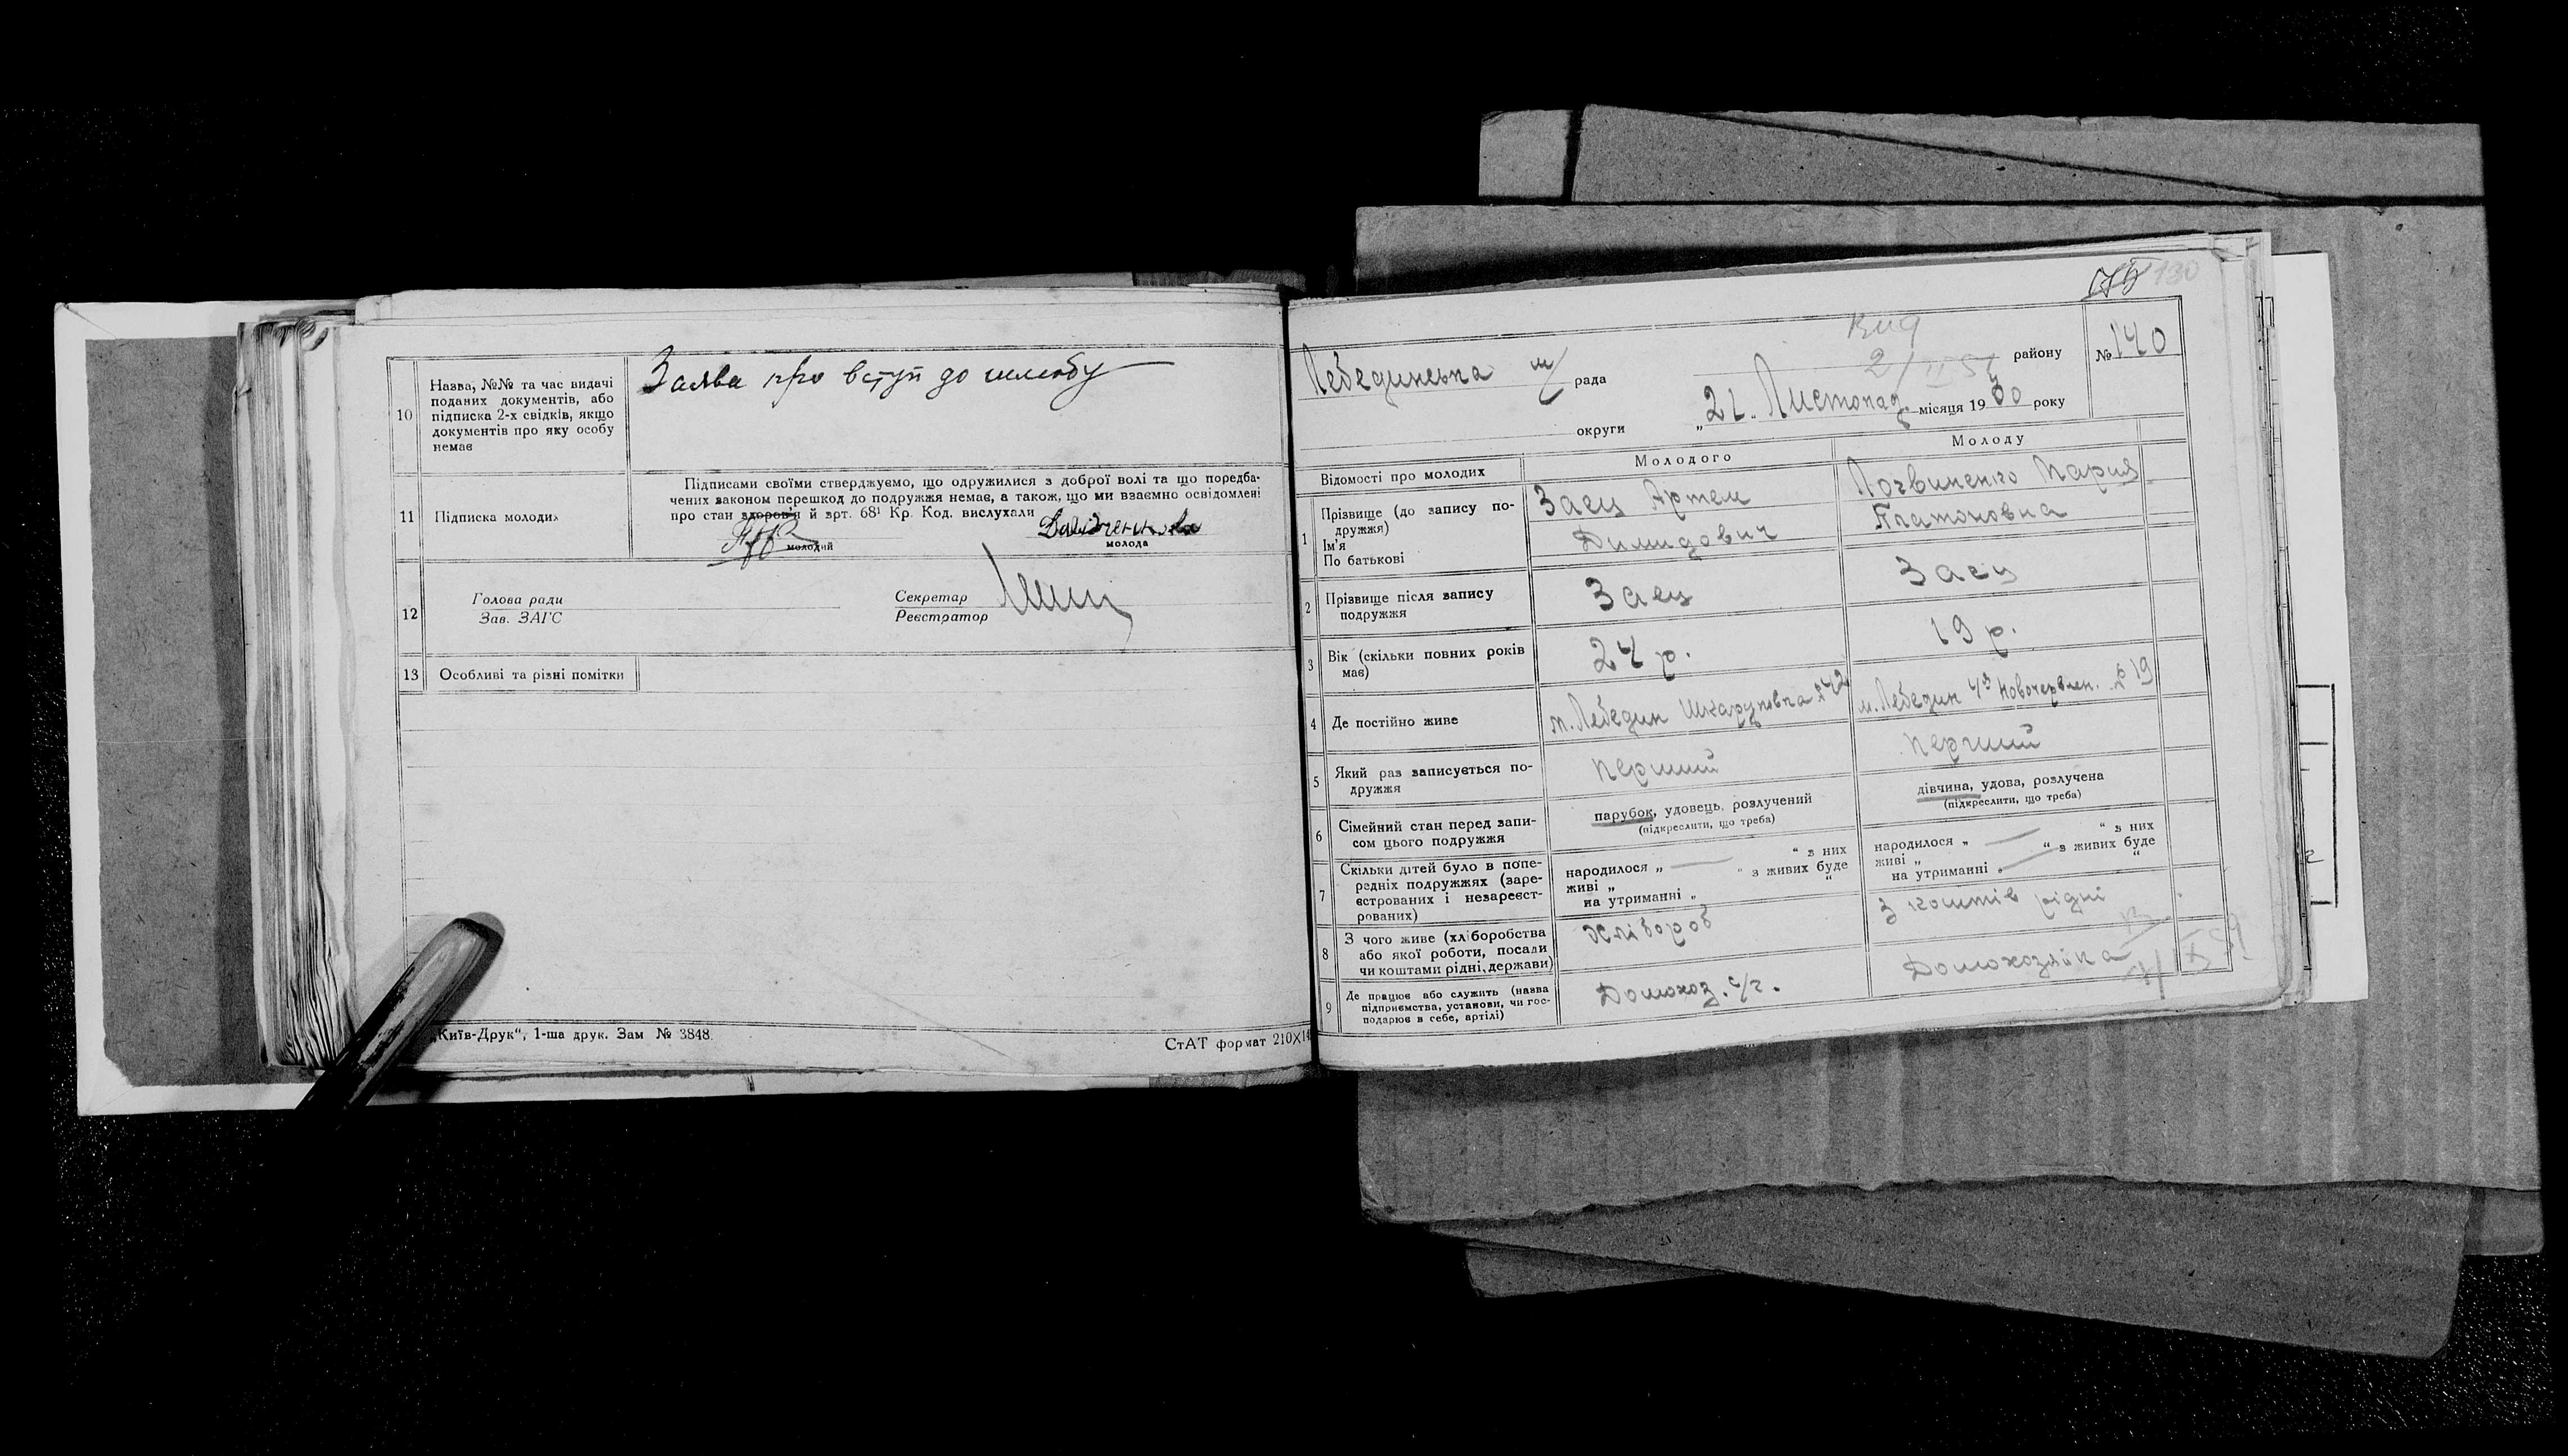 10
Назва, №№ та час видачі
поданих документів, або
підписка 2-х свідків, якщо
документів про яку особу
немає
Заява про вступ до шлюбу
11
Підписка молодих
Підписами своїми стверджуємо, що одружилися з доброї волі та що передба-
чених законом перешкод до подружжя немає, а також, що ми взаємно освідомлені
про стан здоров'я й арт. 68¹ Кр. Код. вислухали
молодий
молода
12
Голова ради
Зав. ЗАГС
Секретар
Реєстратор
13
Особливі та різні помітки
„Київ-Друк“, 1-ша друк. Зам № 3848.
СтАТ формат 210X14
130
Лебединська м/ рада
району
№ 140
округи
„21„ Листопад місяця 1930 року
Відомості про молодих
Молодого
Молоду
1
Прізвище (до запису по-
дружжя)
Ім'я
По батькові
Заец Артем
Димидович
Логвиненко Мария
Платоновна
2
Прізвище після запису
подружжя
Заец
Заец
3
Вік (скільки повних років
має)
24 р.
19 р.
4
Де постійно живе
м. Лебедин Шкаруповка № 42
м. Лебедин Новочервлен. № 19
5
Який раз записується по-
дружжя
перший
перший
6
Сімейний стан перед запи-
сом цього подружжя
парубок, удовець, розлучений
(підкреслити, що треба)
дівчина, удова, розлучена
(підкреслити, що треба)
7
Скільки дітей було в попе-
редніх подружжях (заре-
єстрованих і незареєст-
рованих)
народилося „ — “ з них
живі „ “ з живих буде
на утриманні „ “
народилося „ — “ з них
живі „ “ з живих буде
на утриманні „ — “
8
З чого живе (хліборобства
або якої роботи, посади
чи коштами рідні, держави)
хлібороб
З коштів рідні
9
Де працює або служить (назва
підприємства, установи, чи гос-
подарює в себе, артілі)
Домохоз. с/г.
Домохозяйка